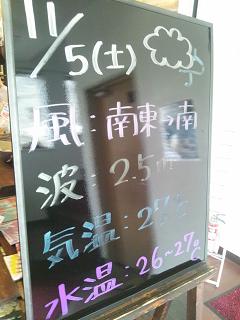 11/5(土)
風:南東→南
波:2.5m
気温:27℃
水温:26~27℃